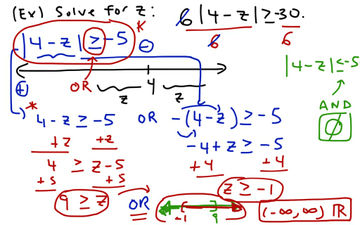 (Ex) Solve for z:
6|4-z| ≥ -30.
6 6
|4-z| ≥ -5
+ OR z 4 z +
|4-z| ≤ -5
AND
∅
4-z ≥ -5 OR -(4-z) ≥ -5
+z +z
-4+z ≥ -5
+4 +4
4 ≥ z-5
+5 +5
z ≥ -1
9 ≥ z OR
-1 9
(-∞, ∞) ℝ